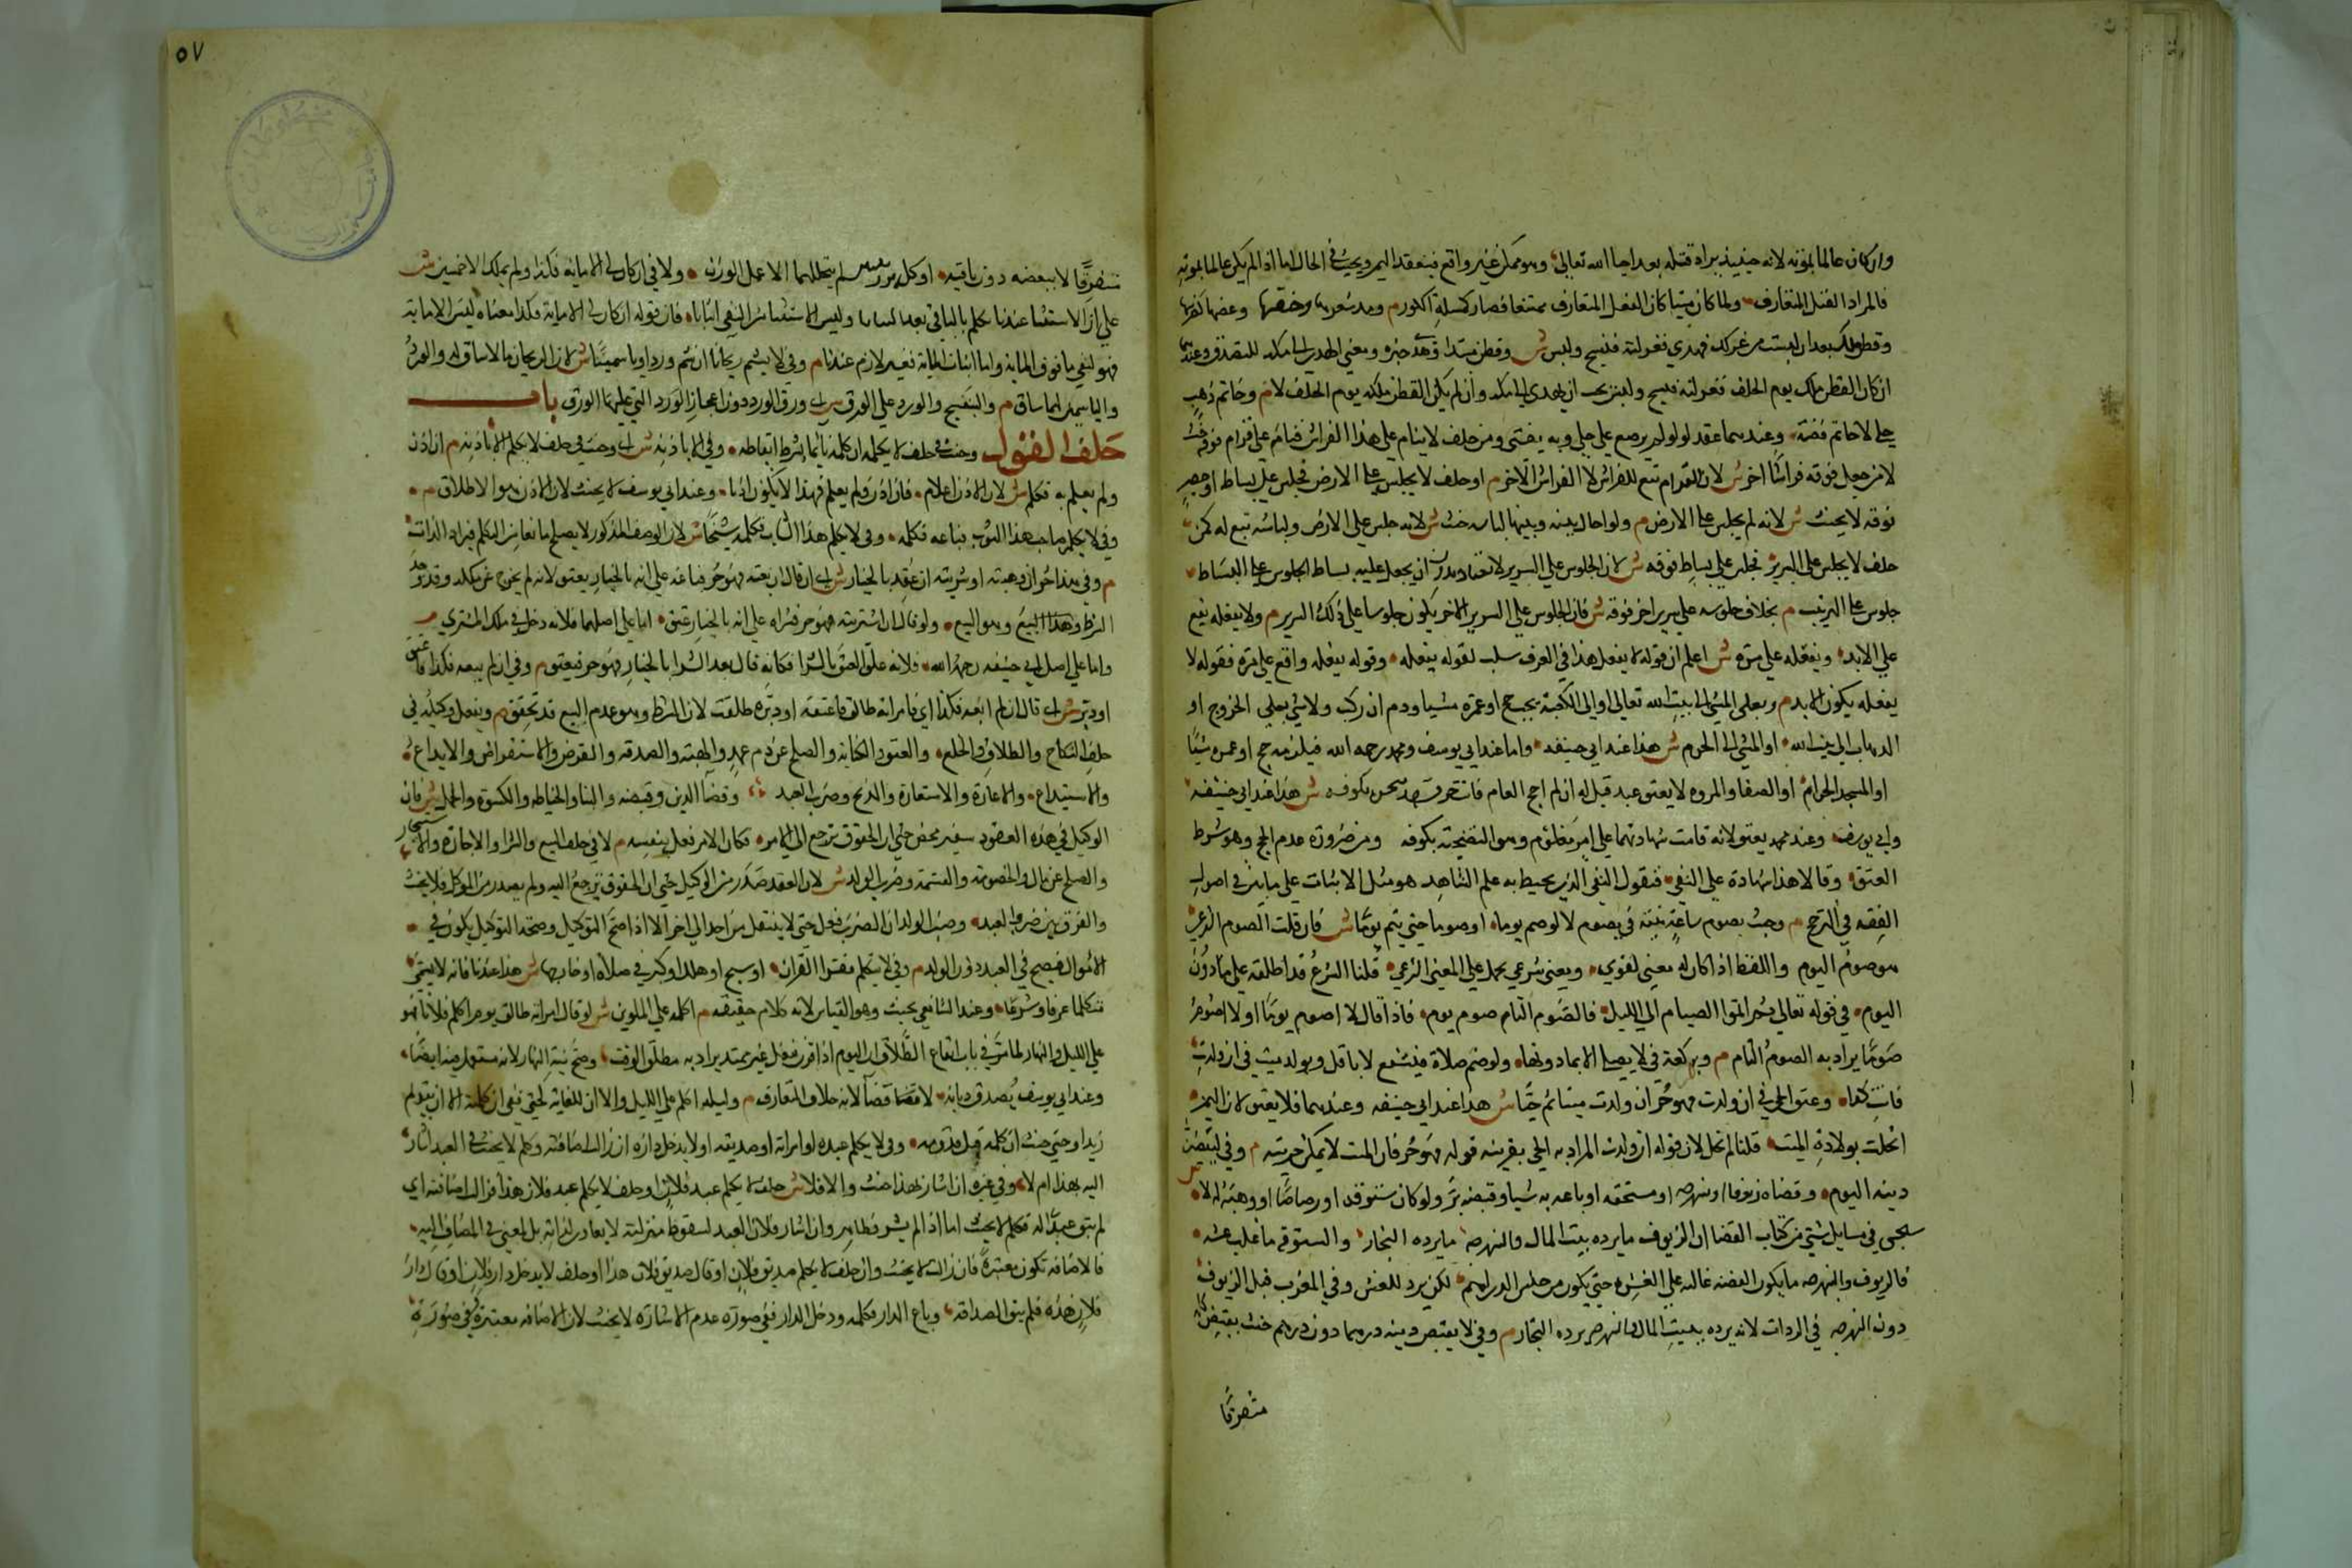 وان كان عالما بموته لانه حينئذ يراد قتله بعد احيا الله تعالى وهو ممكن غير واقع فينعقد اليمين ويحنث في الحال اما اذا لم يكن عالما بموته
فالمراد القتل المتعارف ولما كان ميتا كان القتل المتعارف ممتنعا فصار كمسلة الكوز م ومد شعرها وخنقها وعضها كضربها
وقطن ملكه بعد ان لبست من غزلك فهدي فغزلته فنسج ولبس ش وقطن مبتدا وهدي خبره ومعنى الهدي الى مكة للتصدق وعندهما
ان كان القطن ملكه يوم الحلف فغزلته فنسج ولبس يجب ان يهدي الى مكة وان لم يكن القطن ملكه يوم الحلف لا م وخاتم ذهب
حلي لا خاتم فضة وعندهما عقد لولو لم يرصع حلي وبه يفتى ومن حلف لا ينام على هذا الفراش فنام على قرام فوقه حنث
لا من جعل فوقه فراشا اخر ش لان القرام تبع للفراش لا الفراش الاخر م او حلف لا يجلس على الارض فجلس على بساط او حصير
فوقه لا يحنث ش لانه لم يجلس على الارض م ولو احال بينه وبينها لباسه حنث ش لانه جلس على الارض ولباسه تبع له كمن
حلف لا يجلس على السرير فجلس على بساط فوقه ش لان الجلوس على السرير لا تعتاد بدون ان يجعل عليه بساط الجلوس على البساط
جلوس على السرير م بخلاف جلوسه على سرير اخر فوقه ش فان الجلوس على السرير الاخر يكون جلوسا على ذلك السرير م ولا يفعله يقع
على الابد ويفعله على مرة ش اعلم ان قوله لا يفعل هذا في العرف سلب لقوله يفعله وقوله يفعله واقع على مرة فقوله لا
يفعله يكون للابد م وبعلي المشي الى بيت الله تعالى او الى الكعبة يجب حج او عمرة مشيا ودم ان ركب ولا شي بعلي الخروج او
الذهاب الى بيت الله او المشي الى الحرم ش هذا عند ابي حنيفة واما عند ابي يوسف ومحمد رحمه الله فيلزمه حج او عمرة مشيا
او المسجد الحرام او الصفا والمروة لا يعتق عبد قيل له ان لم احج العام فانت حر فشهدا بنحره بكوفة ش هذا عند ابي حنيفة
وابي يوسف وعند محمد يعتق لانه قامت شهادتهما على امر معلوم وهو التضحية بكوفه ومن ضرورته عدم الحج وهو شرط
العتق وقالا هذا شهادة على النفي فنقول النفي الذي يحيط به علم الشاهد هو مثل الاثبات على ما بين في اصول
الفقه في الترجيح م وحنث بصوم ساعة بنية في يصوم لا لو صم يوما او صوما حتى يتم يوما ش فان قلت الصوم الشرعي
هو صوم اليوم واللفظ اذا كان له معنى لغوي ومعنى شرعي يحمل على المعنى الشرعي قلنا الشرع قد اطلقه على ما دون
اليوم في قوله تعالى ثم اتموا الصيام الى الليل فالصوم التام صوم يوم فاذا قال لا اصوم يوما او لا اصوم
صوما يراد به الصوم التام م وبركعة في لا يصلي لا بما دونها ولو ضم صلاة فبشفع لا باقل وبولد ميت في ان ولدت
فانت كذا وعتق الحي في ان ولدت فهو حر ان ولدت ميتا ثم حيا ش هذا عند ابي حنيفه وعندهما فلا يعتق لان اليمين
انحلت بولادة الميت قلنا لم تنحل لان قوله ان ولدت المراد به الحي بقرينة قوله فهو حر فان الميت لا يمكن حريته م وفي ليقضين
دينه اليوم وقضاه زيوفا او نبهرجه او مستحقه او باعه به شيا وقبضه بر ولو كان ستوقه او رصاصا او وهبه له لا ش
سيجي في مسايل شتى من كتاب القضا ان الزيوف ما يرده بيت المال والنبهرجة ما يرده التجار والستوقه ما غلب غشه
فالزيوف والنبهرجه ما يكون الفضه غالبه على الغش حتى يكون من جنس الدراهم لكن يرد للغش وفي المغرب قيل الزيوف
دون النبهرجه في الرداة لانه يرده بيت المال والنبهرجه يرده التجار م وفي لا يقبض دينه درهما دون درهم حنث بقبض كله
متفرقا
٥٧
متفرقا لا ببعضه دون باقيه او كله بوزنين لم يتخللهما الا عمل الوزن ولا في ان كان لي الا مايه فكذا ولم يملك الا خمسين ش
على ان الاستثنا عندنا تكلم بالباقي بعد الثنيا وليس الاستثنا من النفي اثباتا فان قوله ان كان لي الا ماية فكذا معناه ليس الا ماية
فهو لنفي ما فوق الماية واما اثبات الماية فغير لازم عندنا م وفي لا يشم ريحانا ان شم وردا او ياسمينا ش لان الريحان ما لا ساق له والورد
والياسمين لهما ساق م والبنفسج والورد على الورق ش اي ورق الورد دون اعجاز الورد التي عليها الورق باب
حلف القول وحنث في حلف لا يكلمه ان كلمه نائما بشرط ايقاظه وفي الا باذنه ش اي وحنث في حلف لا يكلم الا باذنه م ان اذن
ولم يعلم به فكلم ش لان الاذن اعلام فان اذن ولم يعلم فهذا لا يكون اذنا وعند ابي يوسف لا يحنث لان الاذن هو الاطلاق م
وفي لا يكلم صاحب هذا الثوب فباعه فكلمه وفي لا يكلم هذا الشاب فكلمه شيخا ش لان الوصف المذكور لا يصلح مانعا من التكلم فيراد الذات
م وفي هذا حر ان وهبته او شريته ان عقد بالخيار ش اي ان قال ان بعته فهو حر فباعه على انه بالخيار يعتق لانه لم يخرج عن ملكه وقد وجد
الشرط وهذا البيع وهو البيع ولو قال ان اشتريته فهو حر فشراه على انه بالخيار عتق اما على اصلهما فلانه دخل في ملك المشتري
واما على اصل ابي حنيفه رحمه الله فلانه علق العتق بالشرا فكانه قال بعد الشرا بالخيار فهو حر فيعتق م وفي ان لم يبعه فكذا فاعتق
او دبر ش اي قال ان لم ابعه فكذا اي فامراته طالق فاعتقه او دبره طلقت لان الشرط وهو عدم البيع قد تحقق م وبفعل وكيله في
حلف النكاح والطلاق والخلع والعتق والكتابة والصلح عن دم عمد والهبة والصدقه والقرض والاستقراض والايداع
والاستيداع والاعارة والاستعارة والذبح وضرب العبد وقضا الدين وقبضه والبنا والخياطه والكسوة والحمل ش فان
الوكيل في هذه العقود سفير محض حتى ان الحقوق ترجع الى الامر فكان الامر فعل بنفسه م لا في حلف البيع والشرا والاجارة والاستيجار
والصلح عن مال والخصومة والقسمة وضرب الولد ش لان العقد صدر من الوكيل حتى ان الحقوق ترجع اليه ولم يصدر من الموكل فلا يحنث
والفرق بين ضرب العبد وضرب الولد ان الضرب فعل حتى لا ينتقل من احد الى اخر الا اذا صح التوكيل وصحة التوكيل يكون في
الاموال فيصح في العبد دون الولد م وفي لا يتكلم فقرا القران او سبح او هلل او كبر في صلاة او خارجها ش هذا عندنا فانه لا يسمى
متكلما عرفا وشرعا وعند الشافعي يحنث وهو القياس لانه كلام حقيقه م اكلمه على الملوين ش لو قال امراته طالق يوم اكلم فلانا فهو
على الليل والنهار لما مر في باب ايقاع الطلاق ان اليوم اذا قرن بفعل غير ممتد يراد به مطلق الوقت وصح نية النهار لانه مستعمل فيه ايضا
وعند ابي يوسف يصدق ديانة لا قضا لانه خلاف المتعارف م وليلة اكلم على الليل والا ان للغاية كحتى ففي ان كلمته الا ان يقدم
زيدا وحتى حنث ان كلمه قبل قدومه وفي لا يكلم عبده او امراته او صديقه او لا يدخل داره ان زالت اضافته وكلم لا يحنث في العبد اشار
اليه بهذا ام لا وفي غيره ان اشار بهذا حنث والا فلا ش حلف لا يكلم عبد فلان او حلف لا يكلم عبد فلان هذا فزالت اضافته اي
لم يبق عبدا له فكلم لا يحنث اما اذا لم يشر فظاهر وان اشار فلان العبد لسقوط منزلته لا يعادى لذاته بل لمعنى في المضاف اليه
فالاضافه تكون معتبرة فان زالت لا يحنث وان حلف لا يكلم صديق فلان او قال صديق فلان هذا او حلف لا يدخل دار فلان او قال دار
فلان هذه فلم يبق الصداقة وباع الدار فكلمه ودخل الدار ففي صورة عدم الاشارة لا يحنث لان الاضافه معتبرة وفي صورة